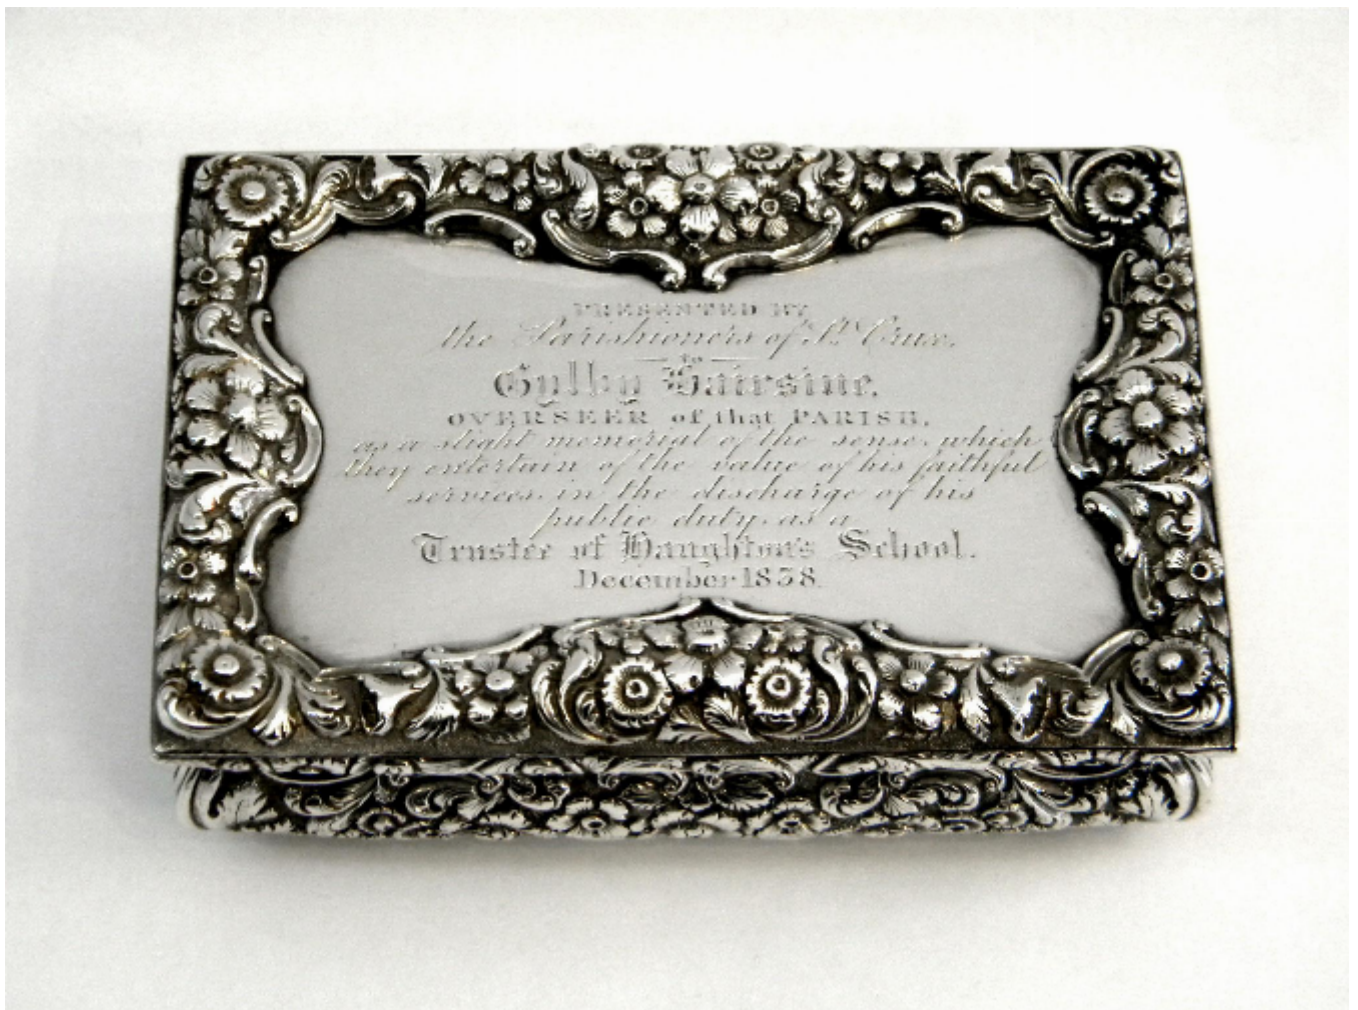 PRESENTED BY
the Parishioners of St. Crux,
to
Gylby Hairsine,
OVERSEER of that PARISH,
as a slight memorial of the sense, which
they entertain of the value of his faithful
services, in the discharge of his
public duty, as a
Trustee of Haughton's School.
December 1838.